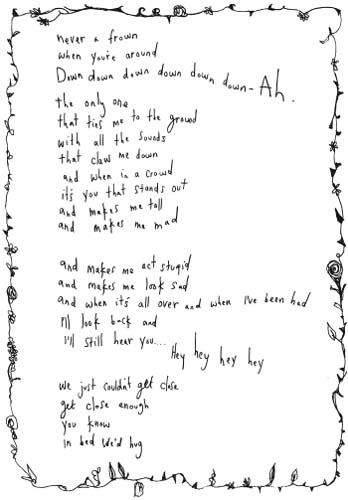 never a frown
when you're around
Down down down down down down - Ah.
the only one
that ties me to the ground
with all the sounds
that claw me down
and when in a crowd
it's you that stands out
and makes me tall
and makes me mad
and makes me act stupid
and makes me look sad
and when it's all over and when I've been had
I'll look back and
I'll still hear you....
Hey hey hey hey
we just couldn't get close
get close enough
you know
in bed we'd hug